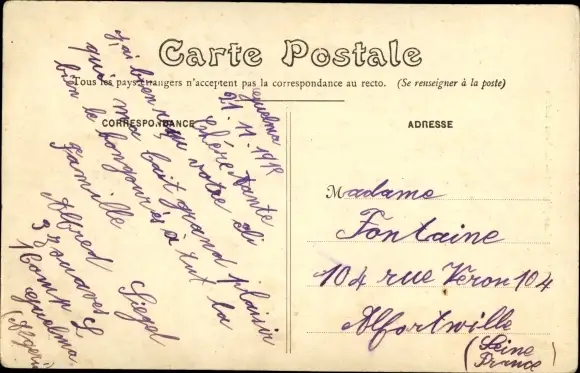 Carte Postale
Tous les pays étrangers n'acceptent pas la correspondance au recto. (Se renseigner à la poste)
CORRESPONDANCE
ADRESSE
guelma
21. 11. 1918
Chère Tante
J'ai bien reçu votre
qui ma fait grand plaisir
bien le bonjour à tut la
famille
Alfred Siegel
3 zouaves
guelma
(Algerie
Madame
Fontaine
104 rue Véron 104
Alfortwille
(Seine
France)